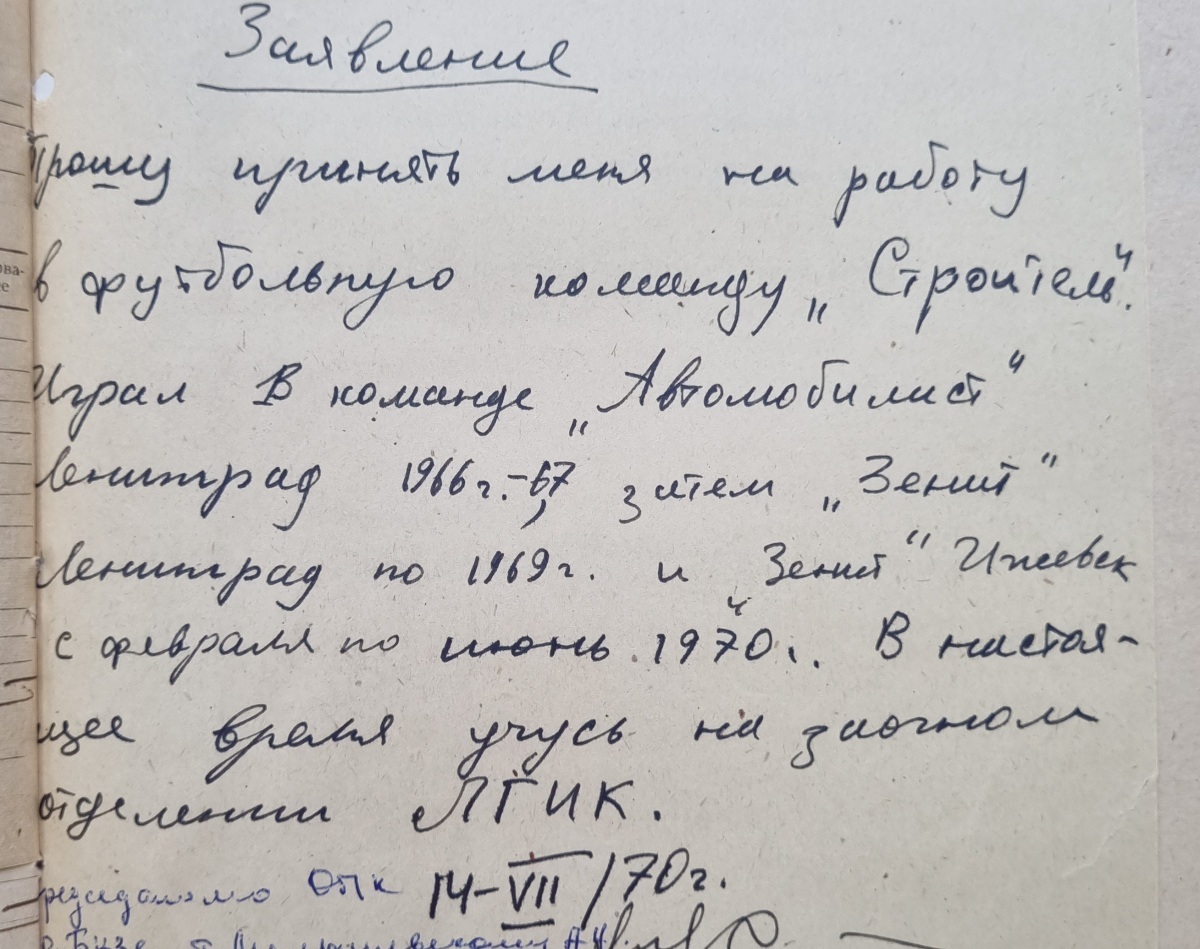 Заявление
Прошу принять меня на работу
в футбольную команду „Строитель".
Играл в команде „Автомобилист"
Ленинград 1966г.-67, затем „Зенит"
Ленинград по 1969г. и "Зенит" Ижевск
с февраля по июнь 1970г. В настоя-
щее время учусь на заочном
отделении ЛГИК.
14-VII/70г.